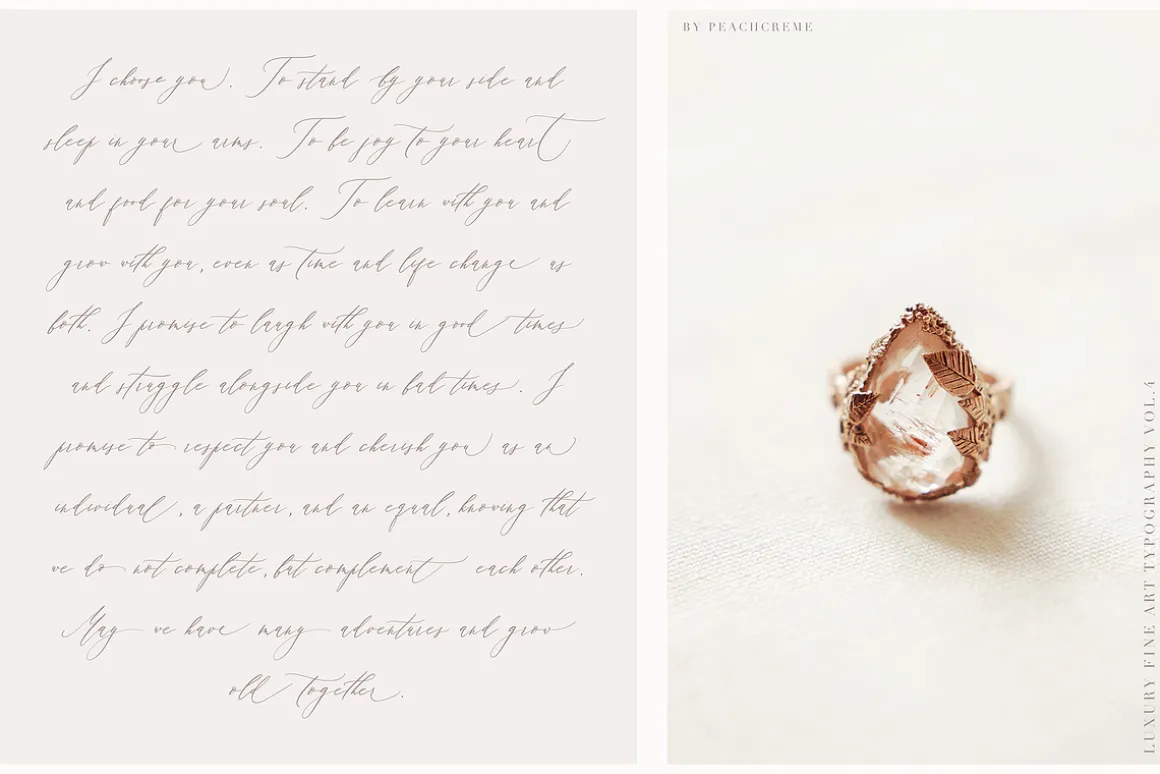 I choose you. To stand by your side and
sleep in your arms. To be joy to your heart
and food for your soul. To learn with you and
grow with you, even as time and life change us
both. I promise to laugh with you in good times
and struggle alongside you in bad times. I
promise to respect you and cherish you as an
individual, a partner, and an equal, knowing that
we do not complete, but complement each other.
May we have many adventures and grow
old together.
BY PEACHCREME
LUXURY FINE ART TYPOGRAPHY VOL.4